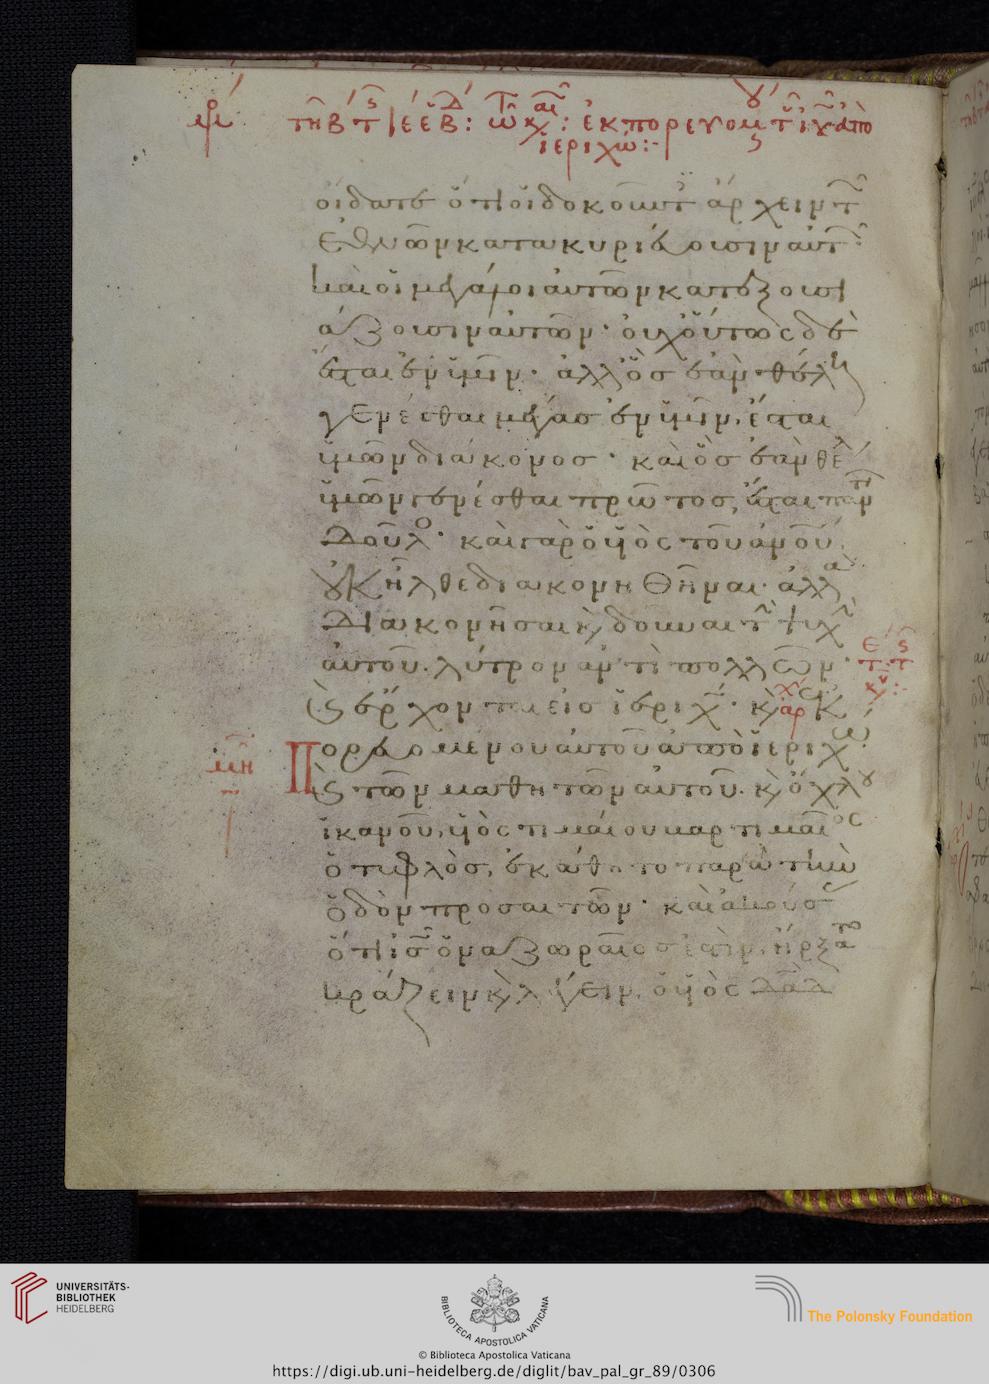 τῇ β τ ε ἑβδ : τῷ και : ἐκπορευομ τ ιυ ἀπο
ἱεριχώ :-
οἴδατε ὅτι οἱ δοκοῦντ ἄρχειν τ
ἐθνῶν κατακυριεύουσιν αὐτ
καὶ οἱ μεγάλοι αὐτῶν κατεξουσι
άζουσιν αὐτῶν· οὐχ οὕτως δὲ
ἔσται ἐν ὑμῖν· ἀλλ' ὃς ἐὰν θέλῃ
γενέσθαι μέγας ἐν ὑμῖν, ἔσται
ὑμῶν διάκονος· καὶ ὃς ἐὰν θέλ
ὑμῶν γενέσθαι πρῶτος, ἔσται παντ
δοῦλο· καὶ γὰρ ὁ υἱὸς τοῦ ανου
οὐκ ἦλθε διακονηθῆναι· ἀλλὰ
διακονῆσαι κ δοῦναι τ ψυχ
αὐτοῦ. λύτρον ἀντὶ πολλῶν·
ἔρχονται εἰς ἱεριχ· κ ἐκ
πορευομένου αὐτοῦ ἀπὸ ἱεριχώ
κ τῶν μαθητῶν αὐτοῦ. κ ὄχλου
ἱκανοῦ, υἱὸς τιμαίου βαρτιμαῖος
ὁ τυφλὸς, ἐκάθητο παρὰ τὴν
ὁδὸν προσαιτῶν· καὶ ἀκούσ
ὅτι ις ὁ ναζωραῖος ἐστιν, ἤρξατο
κράζειν κ λέγειν, ὁ υἱὸς δαδ
UNIVERSITÄTS-
BIBLIOTHEK
HEIDELBERG
BIBLIOTECA APOSTOLICA VATICANA
The Polonsky Foundation
© Biblioteca Apostolica Vaticana
https://digi.ub.uni-heidelberg.de/diglit/bav_pal_gr_89/0306